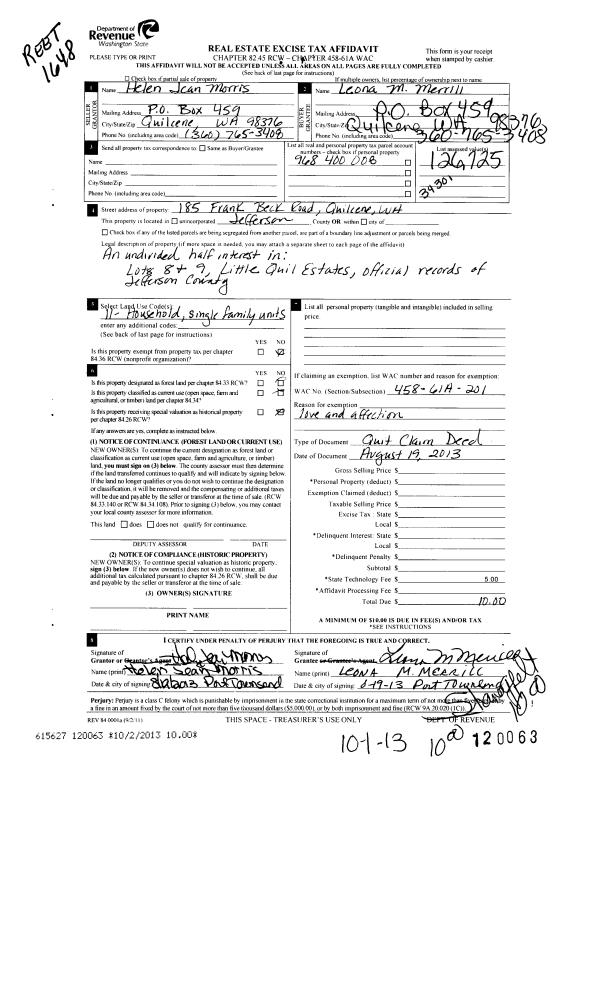 REET
1648
Department of
Revenue
Washington State
PLEASE TYPE OR PRINT
REAL ESTATE EXCISE TAX AFFIDAVIT
CHAPTER 82.45 RCW – CHAPTER 458-61A WAC
This form is your receipt
when stamped by cashier.
THIS AFFIDAVIT WILL NOT BE ACCEPTED UNLESS ALL AREAS ON ALL PAGES ARE FULLY COMPLETED
(See back of last page for instructions)
Check box if partial sale of property
If multiple owners, list percentage of ownership next to name.
1 Name Helen Jean Morris
SELLER GRANTOR
Mailing Address P.O. Box 459
City/State/Zip Quilcene, WA 98376
Phone No. (including area code) (360) 765-3408
2 Name Leona M. Merrill
BUYER GRANTEE
Mailing Address P.O. Box 459
City/State/Zip Quilcene WA 98376
Phone No. (including area code) 360-765-3408
3 Send all property tax correspondence to: Same as Buyer/Grantee
Name
Mailing Address
City/State/Zip
Phone No. (including area code)
List all real and personal property tax parcel account
numbers – check box if personal property
968 400 008
List assessed value(s)
126,725
39301
4 Street address of property: 185 Frank Beck Road, Quilcene, WA
This property is located in unincorporated Jefferson County OR within city of
Check box if any of the listed parcels are being segregated from another parcel, are part of a boundary line adjustment or parcels being merged.
Legal description of property (if more space is needed, you may attach a separate sheet to each page of the affidavit)
An undivided half interest in:
Lots 8 + 9, Little Quil Estates, official records of
Jefferson County
5 Select Land Use Code(s):
11- Household, single family units
enter any additional codes:
(See back of last page for instructions)
YES NO
Is this property exempt from property tax per chapter
84.36 RCW (nonprofit organization)?
6 YES NO
Is this property designated as forest land per chapter 84.33 RCW?
Is this property classified as current use (open space, farm and
agricultural, or timber) land per chapter 84.34?
Is this property receiving special valuation as historical property
per chapter 84.26 RCW?
If any answers are yes, complete as instructed below.
(1) NOTICE OF CONTINUANCE (FOREST LAND OR CURRENT USE)
NEW OWNER(S): To continue the current designation as forest land or
classification as current use (open space, farm and agriculture, or timber)
land, you must sign on (3) below. The county assessor must then determine
if the land transferred continues to qualify and will indicate by signing below.
If the land no longer qualifies or you do not wish to continue the designation
or classification, it will be removed and the compensating or additional taxes
will be due and payable by the seller or transferor at the time of sale. (RCW
84.33.140 or RCW 84.34.108). Prior to signing (3) below, you may contact
your local county assessor for more information.
This land does does not qualify for continuance.
DEPUTY ASSESSOR DATE
(2) NOTICE OF COMPLIANCE (HISTORIC PROPERTY)
NEW OWNER(S): To continue special valuation as historic property,
sign (3) below. If the new owner(s) does not wish to continue, all
additional tax calculated pursuant to chapter 84.26 RCW, shall be due
and payable by the seller or transferor at the time of sale.
(3) OWNER(S) SIGNATURE
PRINT NAME
7 List all personal property (tangible and intangible) included in selling
price.
If claiming an exemption, list WAC number and reason for exemption:
WAC No. (Section/Subsection) 458-61A-201
Reason for exemption
love and affection
Type of Document Quit Claim Deed
Date of Document August 19, 2013
Gross Selling Price $
*Personal Property (deduct) $
Exemption Claimed (deduct) $
Taxable Selling Price $
Excise Tax : State $
Local $
*Delinquent Interest: State $
Local $
*Delinquent Penalty $
Subtotal $
*State Technology Fee $ 5.00
*Affidavit Processing Fee $
Total Due $ 10.00
A MINIMUM OF $10.00 IS DUE IN FEE(S) AND/OR TAX
*SEE INSTRUCTIONS
8 I CERTIFY UNDER PENALTY OF PERJURY THAT THE FOREGOING IS TRUE AND CORRECT.
Signature of
Grantor or Grantor's Agent
Name (print) Helen Jean Morris
Date & city of signing: Port Townsend
Signature of
Grantee or Grantee's Agent Leona M Merrill
Name (print) LEONA M. MERRILL
Date & city of signing: 8-19-13 Port Townsend
Perjury: Perjury is a class C felony which is punishable by imprisonment in the state correctional institution for a maximum term of not more than five years, or by
a fine in an amount fixed by the court of not more than five thousand dollars ($5,000.00), or by both imprisonment and fine (RCW 9A.20.020 (1C)).
REV 84 0001a (9/2/11)
THIS SPACE - TREASURER'S USE ONLY
DEPT OF REVENUE
615627 120063 *10/2/2013 10.00*
10-1-13
120063